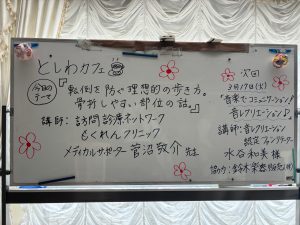 としわカフェ
今回のテーマ
『転倒を防ぐ理想的な歩き方。
骨折しやすい部位の話。』
講師：訪問診療ネットワーク
もくれんクリニック
メディカルサポーター 菅沼敬介 先生
次回
3月17日(火)
「音楽でコミュニケーション♪
音レクリエーション♪」
講師：音レクリエーション
認定ファシリテーター
水谷和美様
協力：鈴木楽器販売(株)